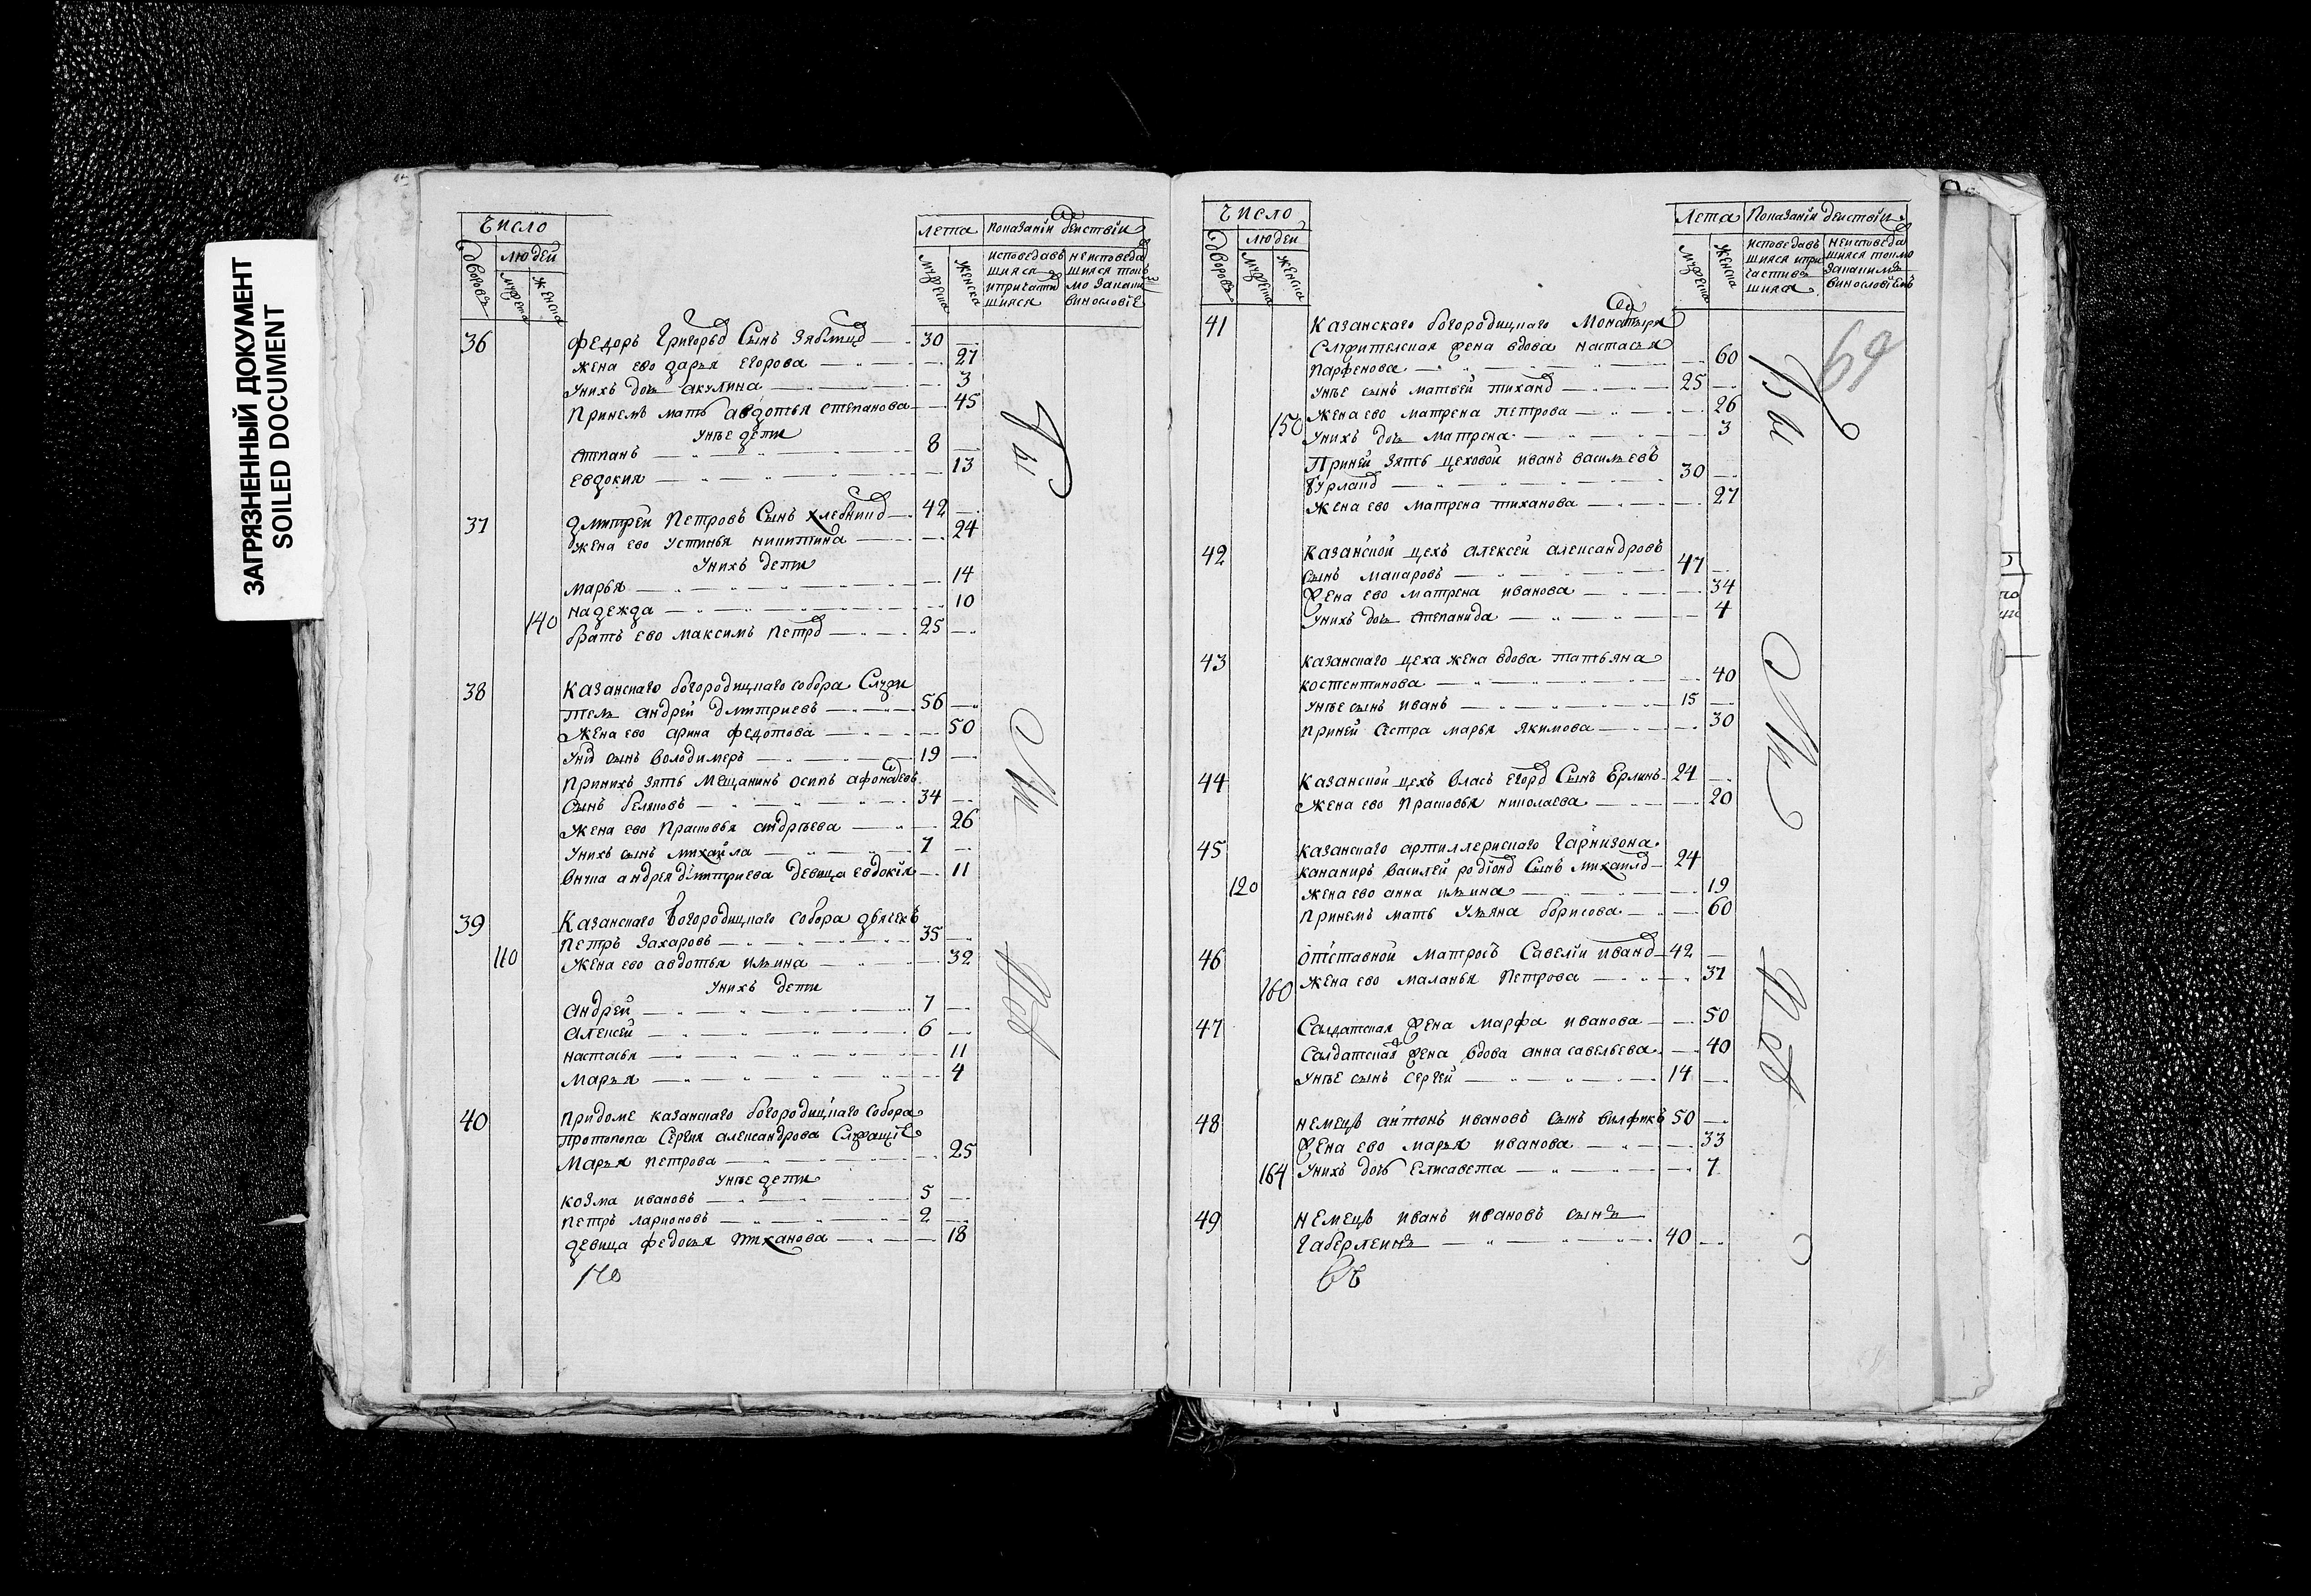 ЗАГРЯЗНЕННЫЙ ДОКУМЕНТ
SOILED DOCUMENT
Число
Лета Показанїи действїи
дворовъ людей
мужеска женска
мужеска женска
исповедавъ
шияся
ипричасти
шияся
неисповеда
шияся толь
мо
винословїе
36 Федоръ Григорьѣ Сынъ 30
жена ево дарья Егорова 27
унихъ дочь акулина 3
принемъ мать авдотья степанова 45
унее дети
степанъ 8
евдокия 13
37 дмитрей Петровъ Сынъ хлебник 42
жена ево устинья никитина 24
унихъ дети
марья 14
надежда 10
140 братъ ево максимъ петро 25
38 казанскаго богородицкаго собора служи
тель андрей дмитриевъ 56
жена ево арина федотова 50
сынъ володимеръ 19
принихъ зять мещанинъ осипъ афонасевъ
сынъ беляковъ 34
жена ево прасковья андреева 26
унихъ сынъ михайла 7
внука андрея дмитриева девица евдокїя 11
39 Казанскаго богородицкаго собора дьячекъ
петръ захаровъ 35
110 жена ево авдотья ильина 32
унихъ дети
андрей 7
алексей 6
настасья 11
марья 4
40 придоме казанскаго богородицкаго собора
протопопа Сергея александрова Служащїе
марья петрова 25
унее дети
козма ивановъ 5
петръ ларионовъ 2
девица федосья тиханова 18
Число
Лета Показанїи действїи
дворовъ людей
мужеска женска
мужеска женска
исповедавъ
шияся ипри
частив
шияся
неисповеда
шияся толмо
винословїемъ
69
41 казанскаго богородицкаго Монастыря
Служителская жена вдова настасья
парфенова 60
унее сынъ матвей тихано 25
жена ево матрена петрова 26
150 унихъ дочь матрена 3
Приней зять цеховой иванъ васильевъ
30
жена ево матрена тиханова 27
42 казанской цехъ алексей александровъ
сынъ макаровъ 47
жена ево матрена иванова 34
унихъ дочь степанида 4
43 казанскаго цеха жена вдова татьяна
костентинова 40
унее сынъ иванъ 15
приней сестра марья якимова 30
44 казанской цехъ власъ егоро Сынъ Ерлинъ 24
жена ево прасковья николаева 20
45 казанскаго артиллерискаго гарнизона
кананиръ василей родїоно Сынъ михаило 24
120 жена ево анна ильина 19
принемъ мать ульяна борисова 60
46 отставной матросъ Савелїи ивано 42
160 жена ево маланья петрова 37
47 Салдатская жена марфа иванова 50
Салдатская жена вдова анна савельева 40
унее сынъ сергей 14
48 немецъ антонъ ивановъ сынъ вилфикъ 50
жена ево марья иванова 33
164 унихъ дочь елисавета 7
49 немецъ иванъ ивановъ сынъ
габерлеинъ 40